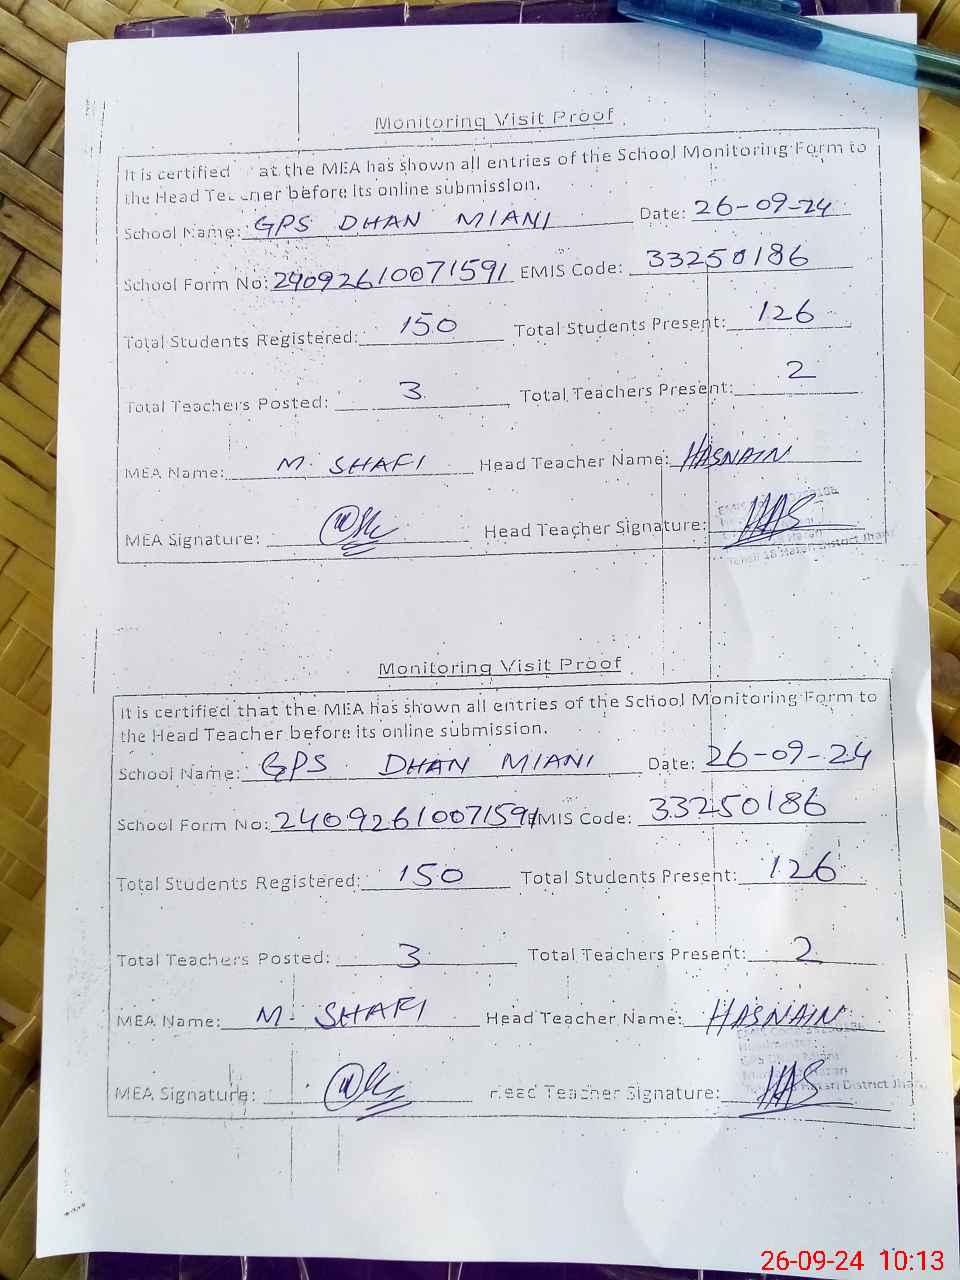 Monitoring Visit Proof
It is certified at the MEA has shown all entries of the School Monitoring Form to
the Head before its online submission.
School Name: GPS DHAN MIANI Date: 26-09-24
School Form No: 24092610071591 EMIS Code: 33250186
Total Students Registered: 150 Total Students Present: 126
Total Teachers Posted: 3 Total Teachers Present: 2
MEA Name: M. SHAFI Head Teacher Name: HASNAIN
MEA Signature: Head Teacher Signature: HAS
District Jhang
Monitoring Visit Proof
It is certified that the MEA has shown all entries of the School Monitoring Form to
the Head Teacher before its online submission.
School Name: GPS DHAN MIANI Date: 26-09-24
School Form No: 24092610071591 EMIS Code: 33250186
Total Students Registered: 150 Total Students Present: 126
Total Teachers Posted: 3 Total Teachers Present: 2
MEA Name: M. SHAFI Head Teacher Name: HASNAIN
MEA Signature: Head Teacher Signature: HAS
District Jhang
26-09-24 10:13